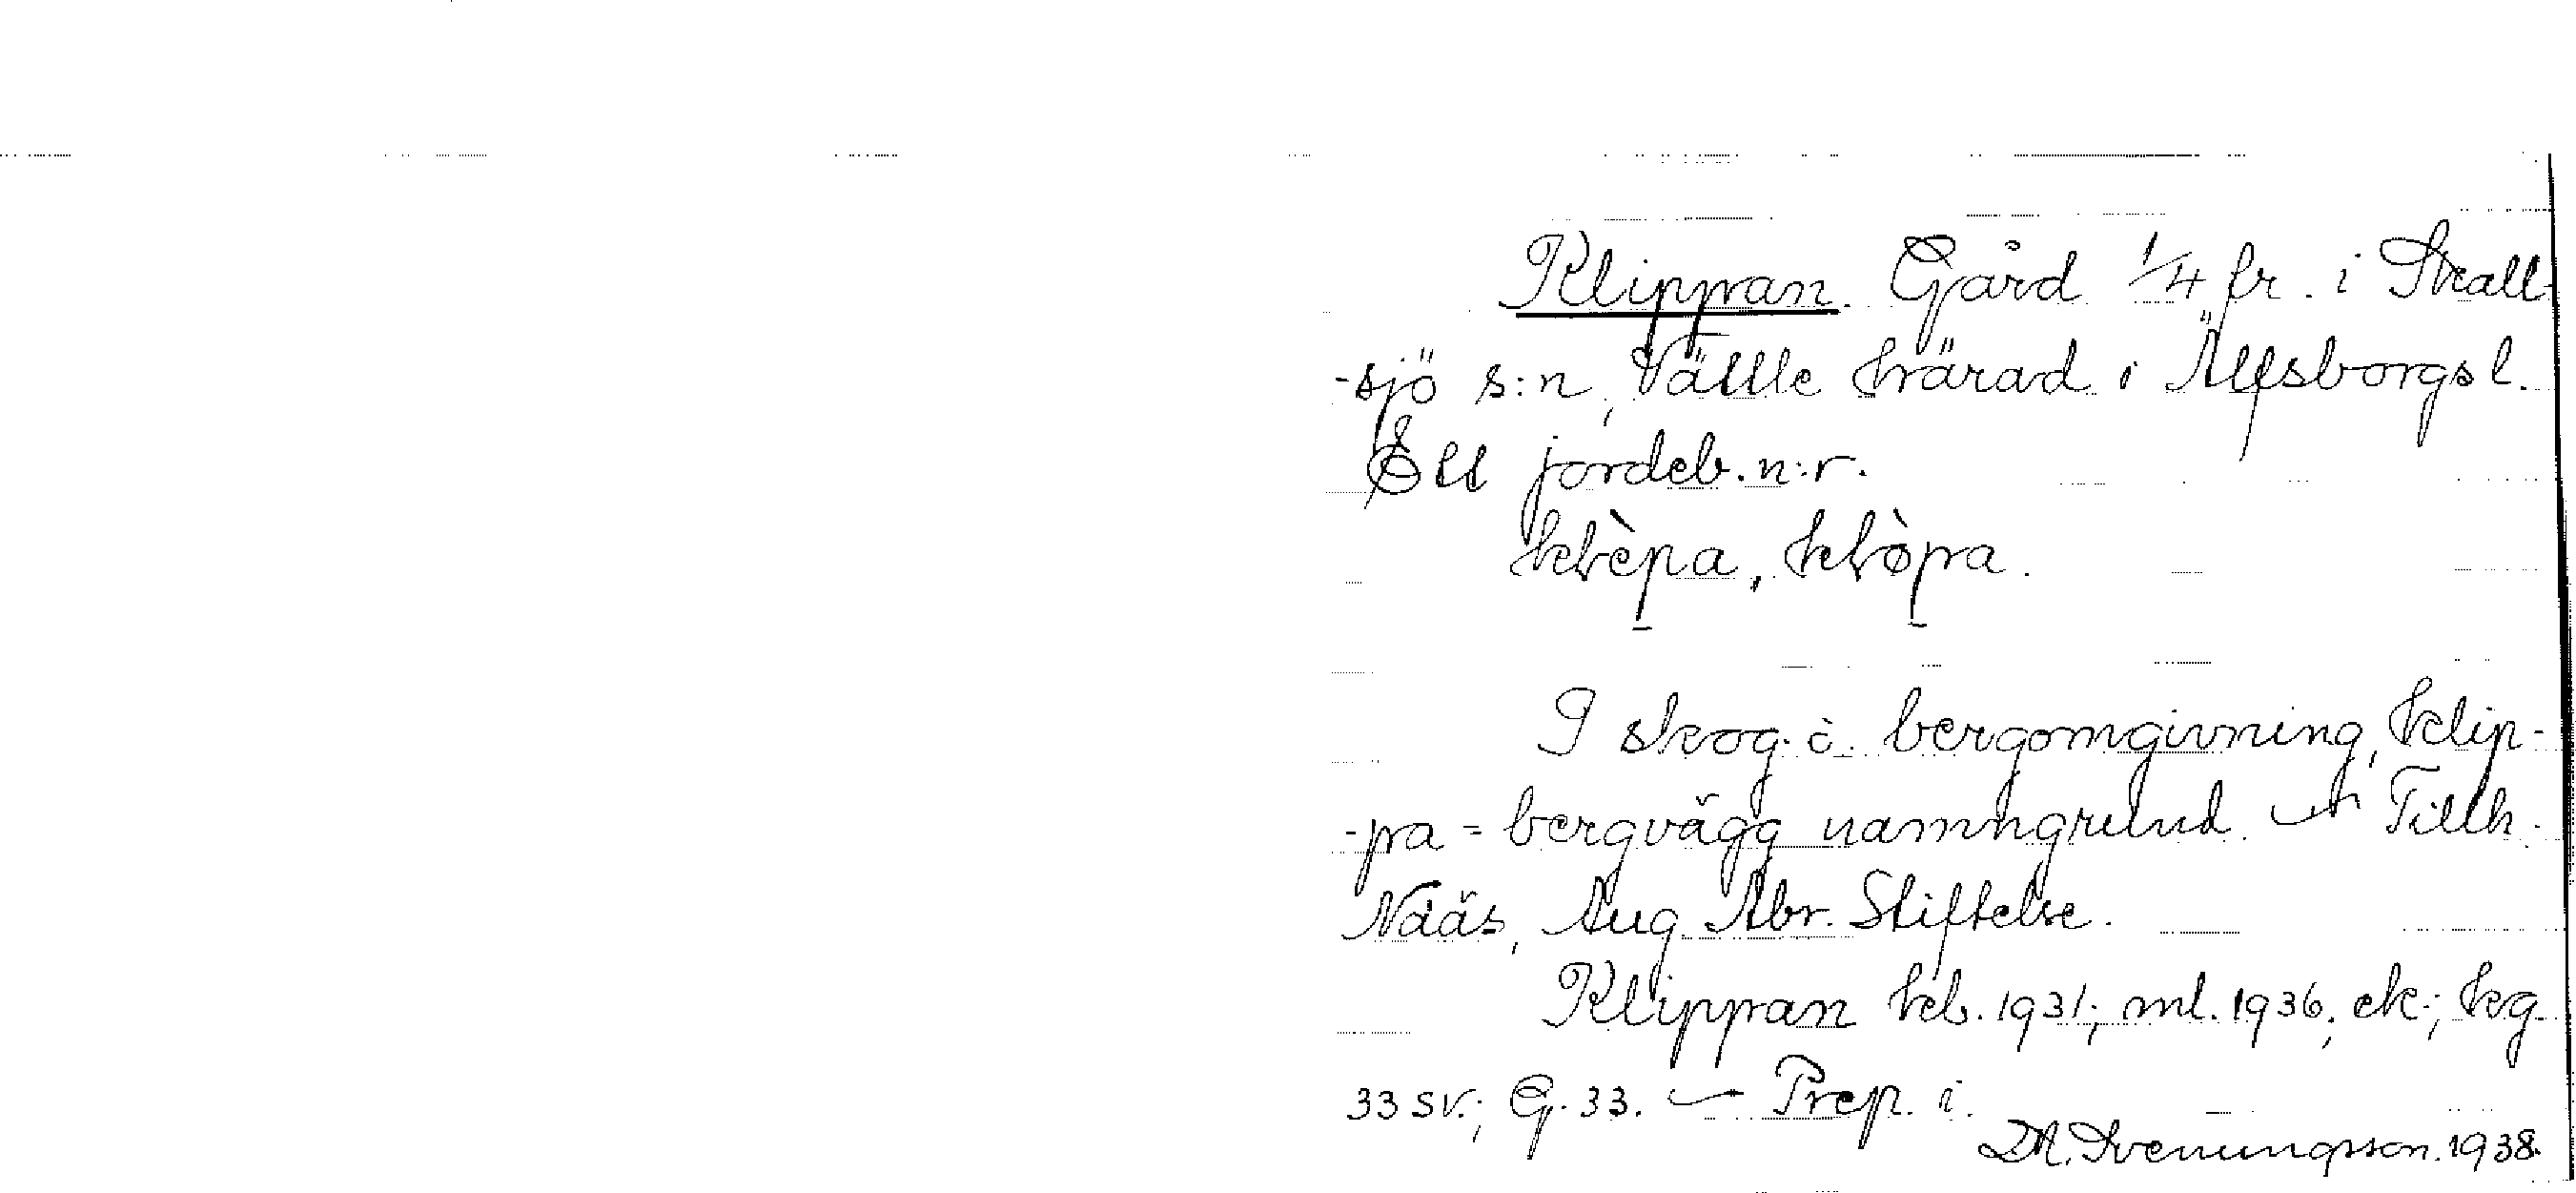 Klippan. Gård 1/4 fr. i Skall-
-sjö s:n, Vättle härad i Älfsborgs l.
Ett jordeb. n:r.
klèpa, kløpa.
I skog i bergomgivning, klip-
-pa = bergvägg namngrund. — Tillh.
Nääs, Aug. Abr. Stiftelse.
Klippan kb. 1931; ml. 1936; ek.; kg
33 sv.; G. 33. — Prep. i.
D.A. Svenungsson. 1938.